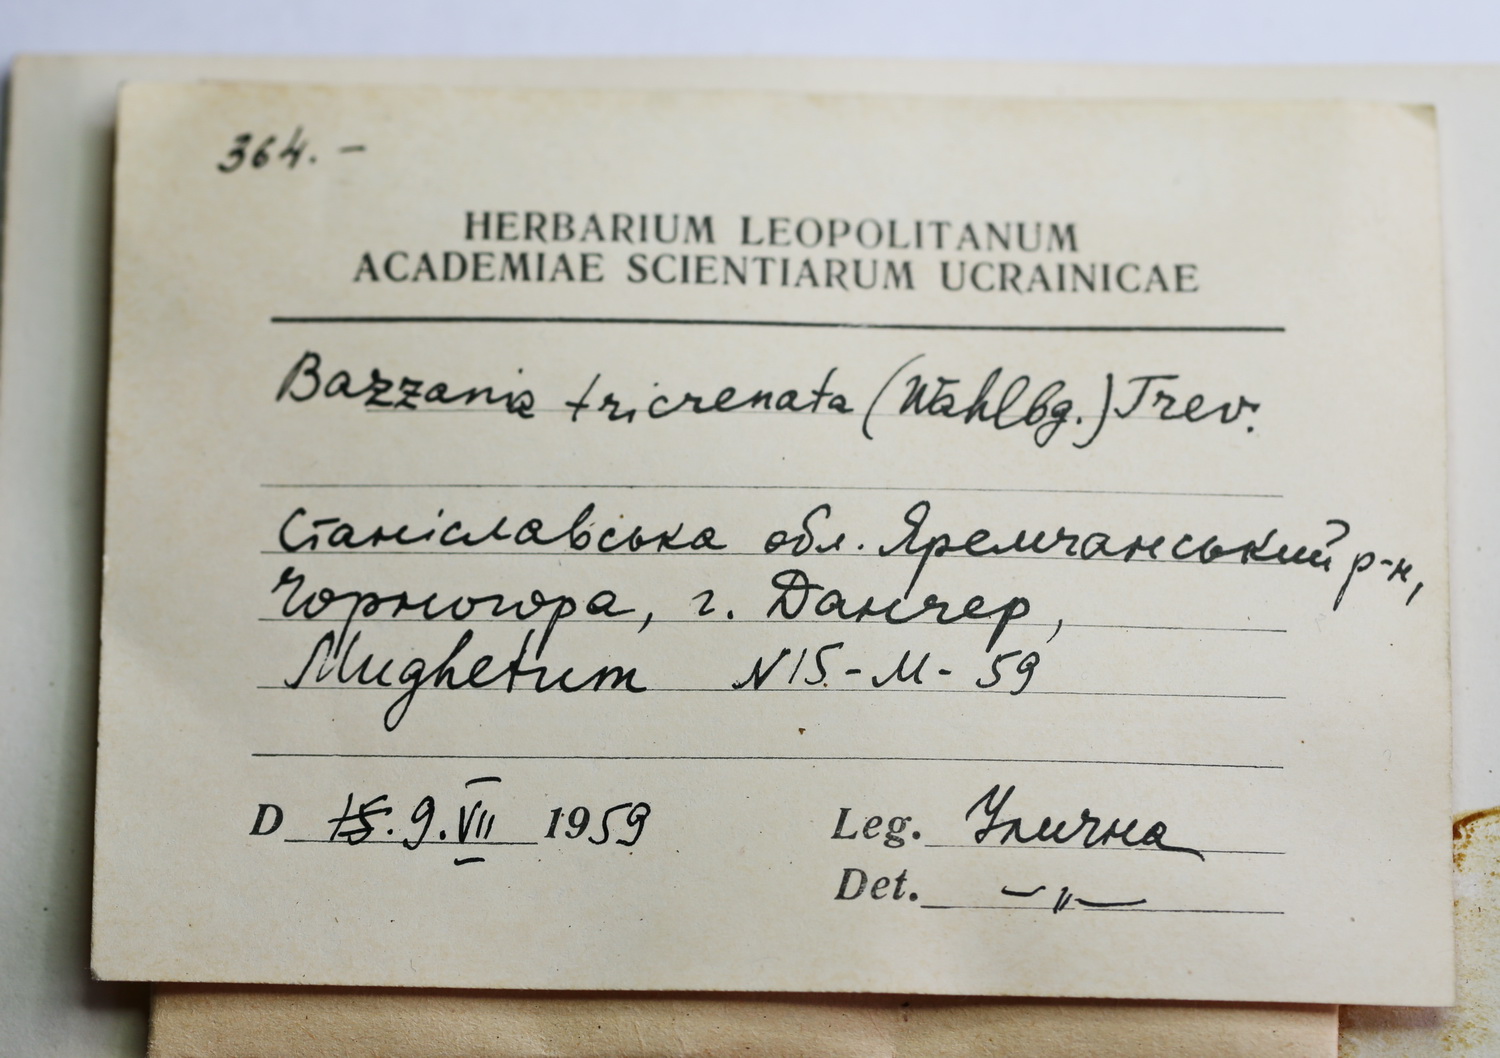 364. -
HERBARIUM LEOPOLITANUM
ACADEMIAE SCIENTIARUM UCRAINICAE
Bazzania tricrenata (Wahlbg.) Trev.
Станіславська обл. Яремчанський р-н,
Чорногора, г. Данчер,
Mughetum N15.-M-59
D 15. 9.VII 1959
Leg. Улична
Det. —"—